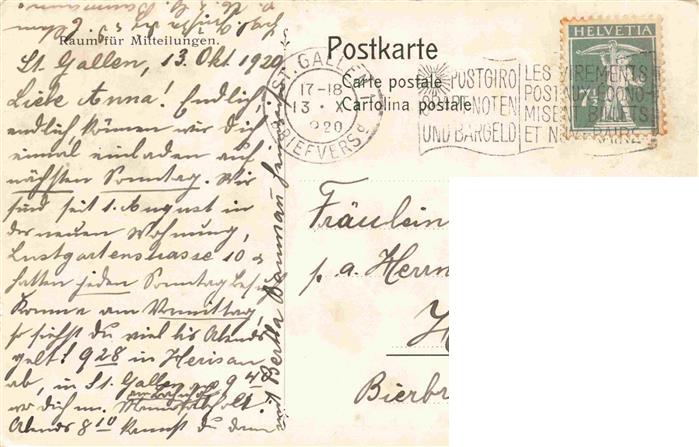 Raum für Mitteilungen.
St. Gallen, 13. Okt 1920
Liebe Anna. Endlich
endlich können wir Dich
einmal einladen auf
nächsten Sonntag. Wir
sind seit 1. August in
der neuen Wohnung,
Lustgartenstrasse 10 &
hatten jeden Sonntag
Komme am Vormittag,
so siehst du viel bis Abends
gelt! 9 28 in Herisau
ab, in St. Gallen 9 48
wo dich m. Mann abholt.
Abends 8 10 kannst du dann
Bertha Baumann
Postkarte
Carte postale
Cartolina postale
ST. GALLEN
17-18
13. X.
1920
BRIEFVERSD.
POSTGIRO
NOTEN
UND BARGELD
LES VIREMENTS
POSTAUX ÉCONO-
MISENT BILLETS
ET NUMÉRAIRE
HELVETIA
7½
Fräulein
p. a. Herrn
H
Bierbr